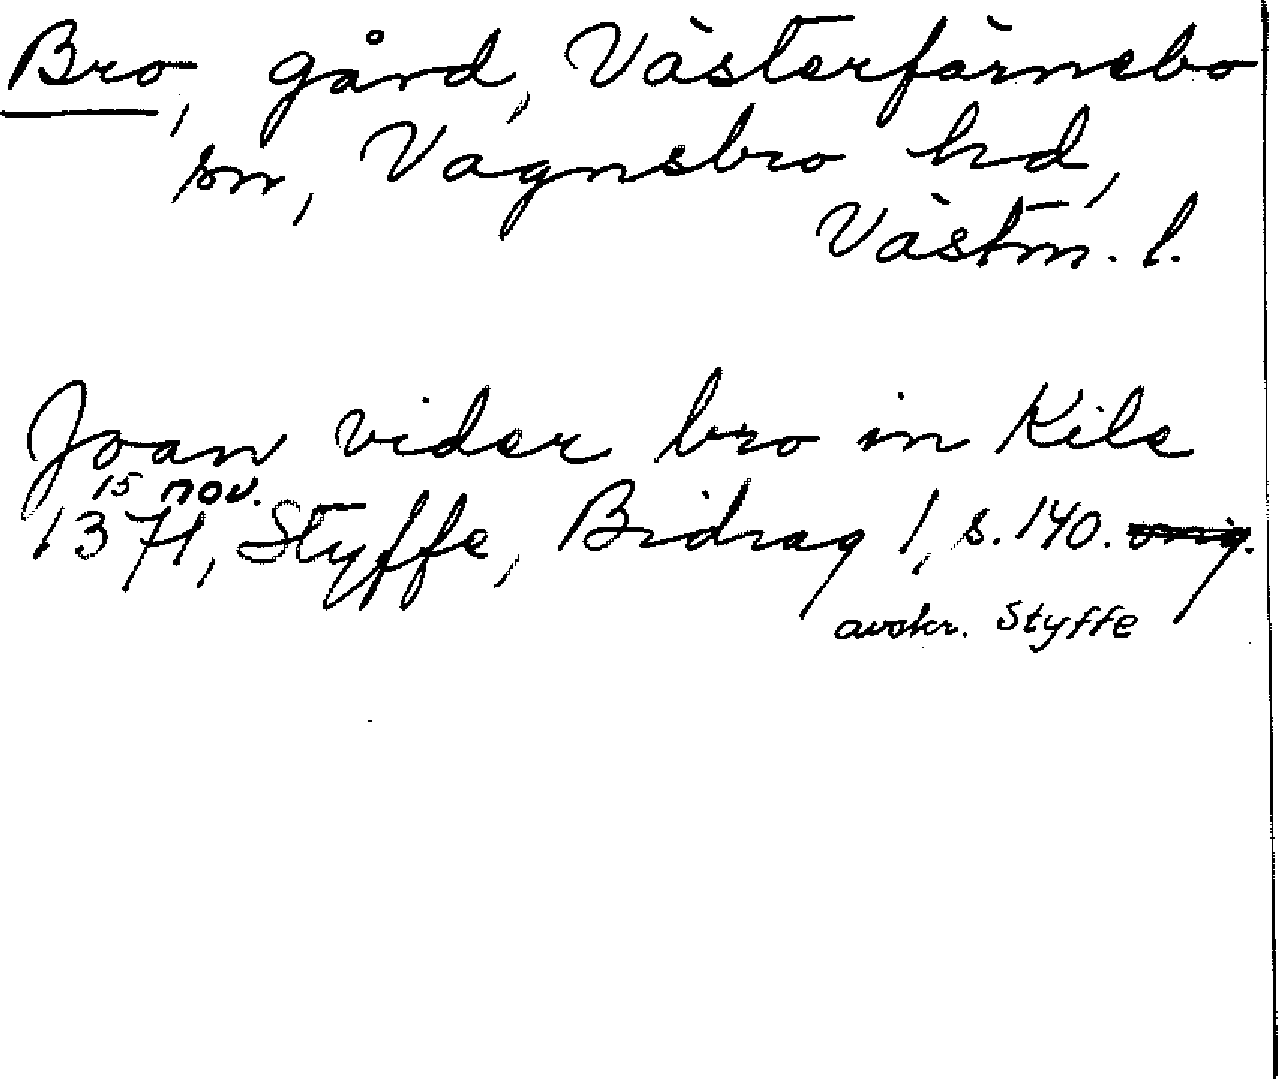 Bro, gård, Västerfärnebo
sn, Vagnsbro hd,
Västm. l.
Joan vider bro in Kila
15 nov.
1371, Styffe, Bidrag 1, s. 140. orig.
avskr. Styffe